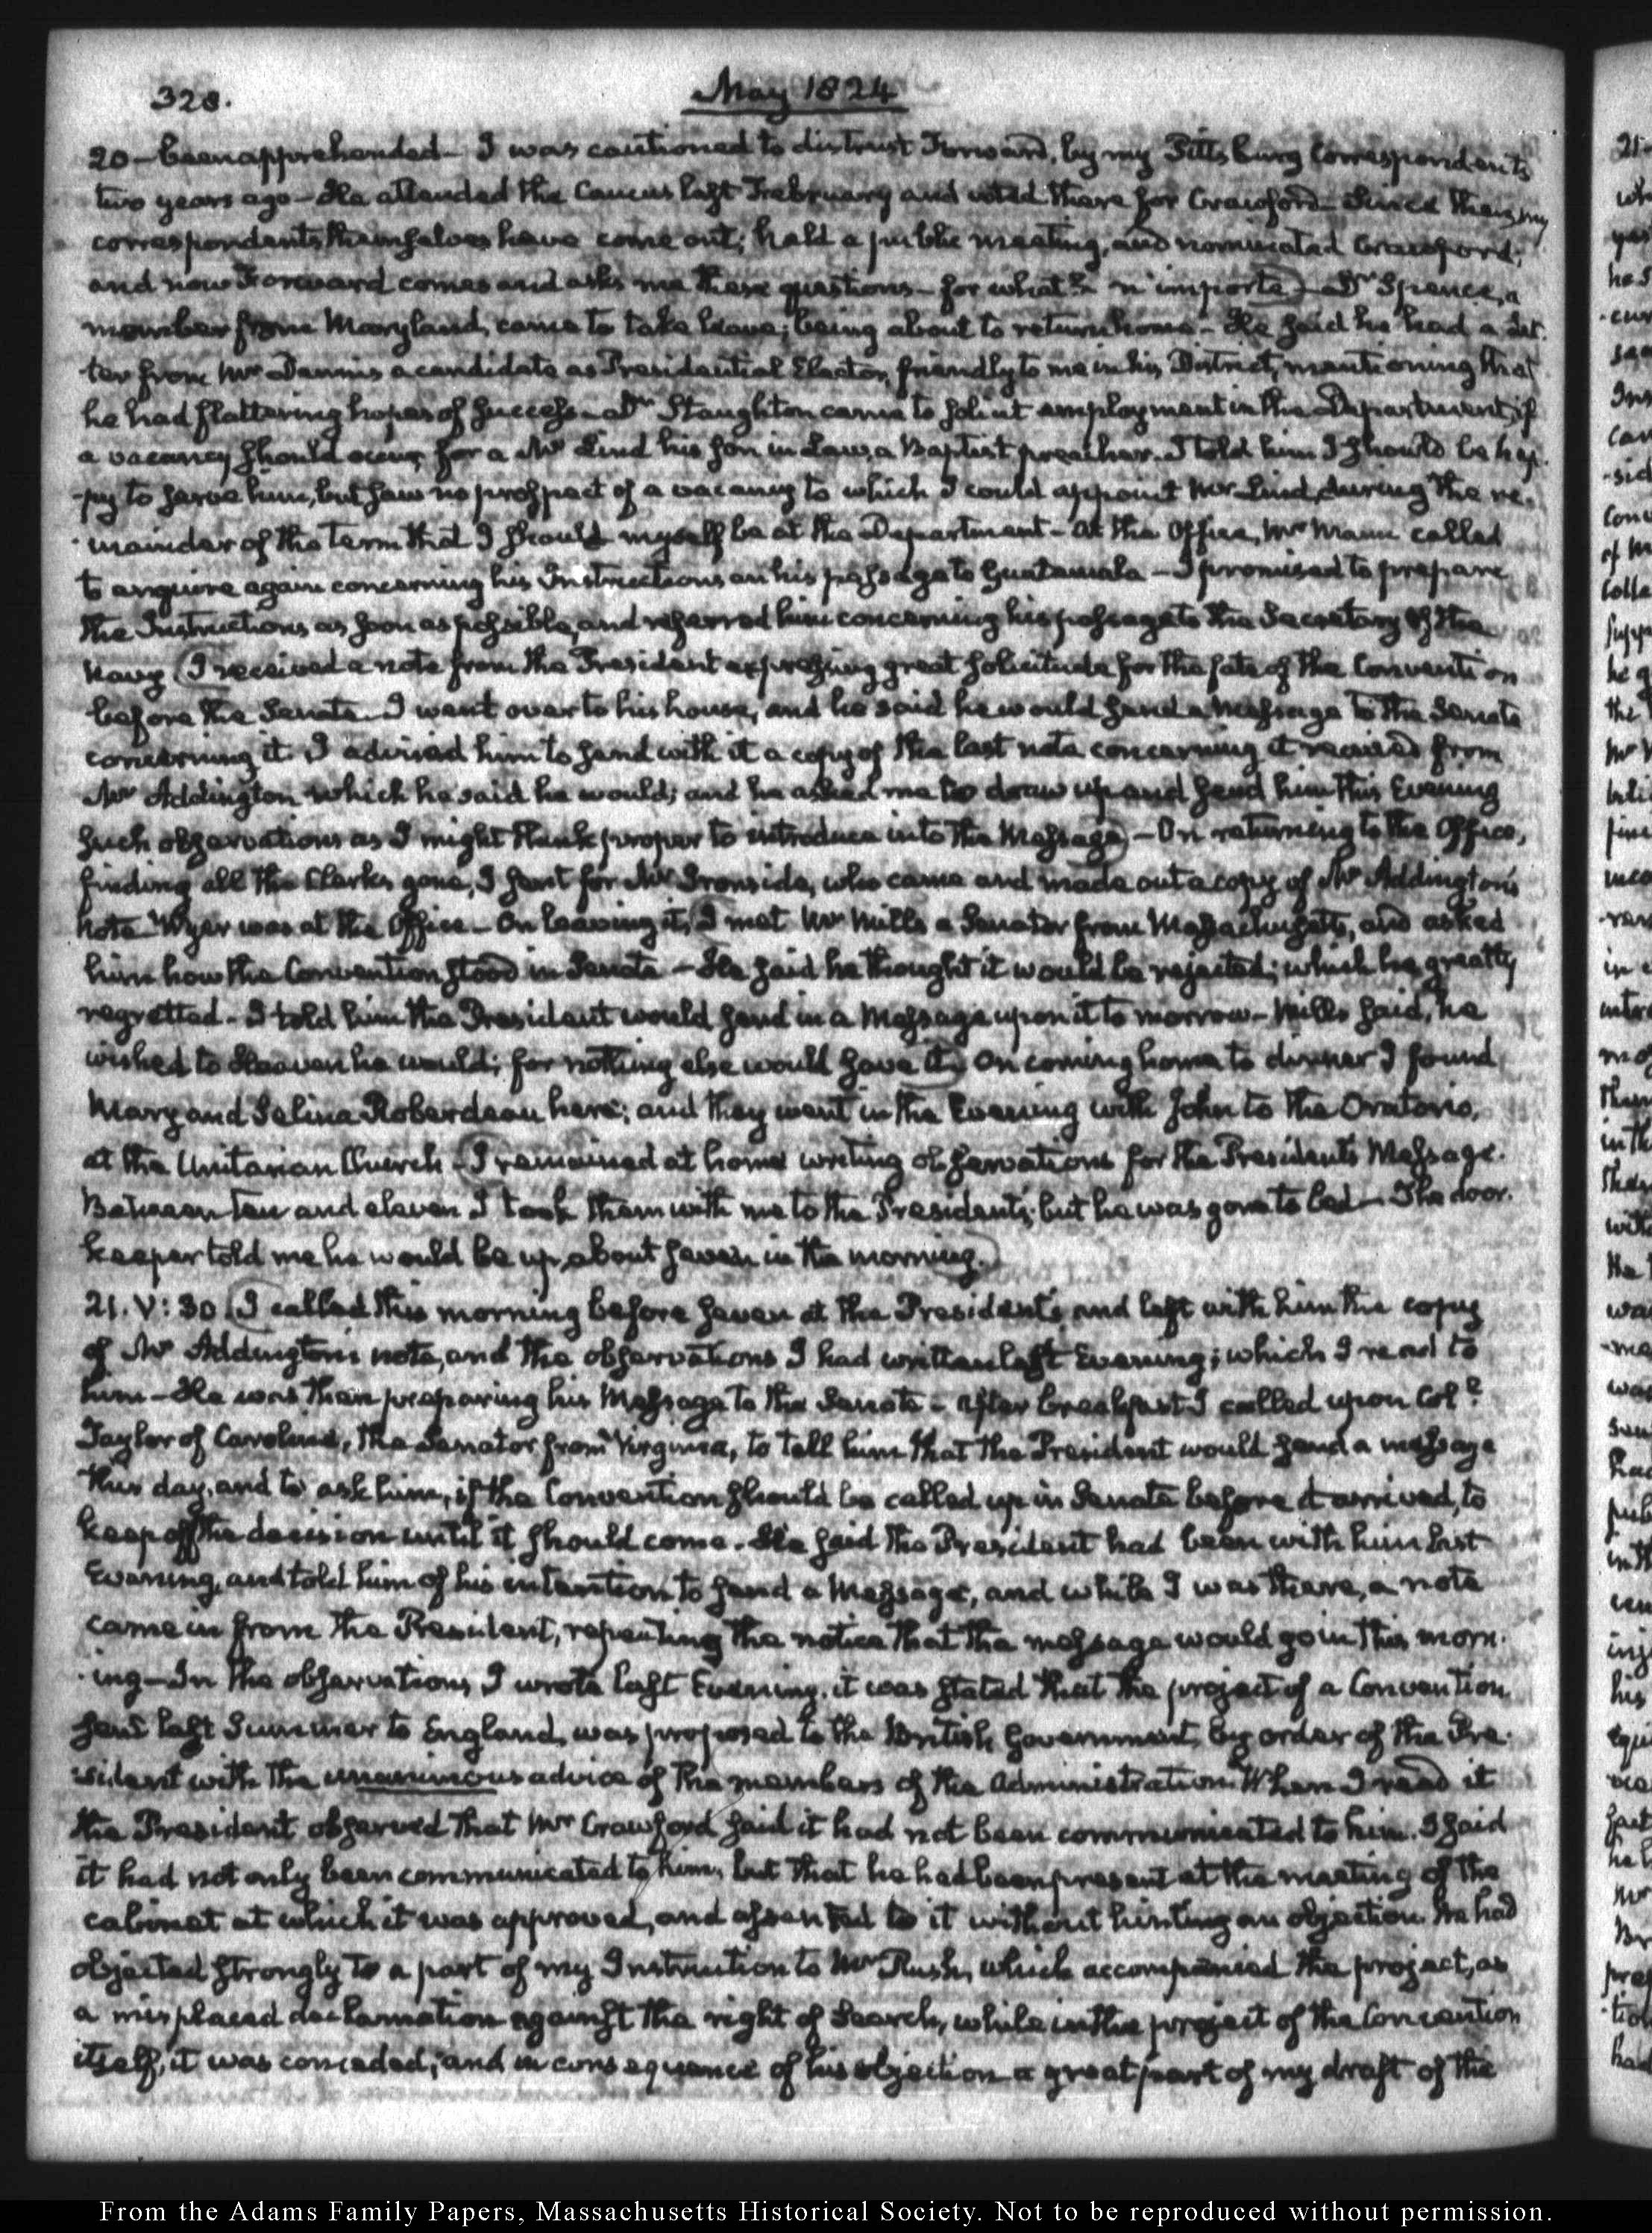 328.
May 1824
20 — been apprehended — I was cautioned to distrust Forward, by my Pittsburg Correspondents
two years ago — He attended the Caucus last February and voted there for Crawford — Since then, my
correspondents themselves have come out; held a public meeting, and nominated Crawford;
and now Forward comes and asks me these questions — for what? n'importe — Dr. Spence, a
member from Maryland, came to take leave; being about to return home — He said he had a Let-
ter from Mr Dennis a candidate as Presidential Elector, friendly to me in his District, mentioning that
he had flattering hopes of success — Dr Staughton came to solicit employment in the Department, if
a vacancy should occur, for a Mr Lind his son in Law, a Baptist preacher. I told him I should be hap-
-py to serve him, but saw no prospect of a vacancy to which I could appoint Mr Lind, during the re-
-mainder of the term that I should myself be at the Department — At the Office, Mr Mann called
to enquire again concerning his Instructions on his passage to Guatemala — I promised to prepare
the Instructions as soon as possible, and referred him concerning his passage to the Secretary of the
Navy (I received a note from the President expressing great solicitude for the fate of the Convention
before the Senate. I went over to his house, and he said he would send a Message to the Senate
concerning it. I advised him to send with it a copy of the last note concerning it received from
Mr Addington which he said he would; and he asked me to draw up and send him this Evening
such observations as I might think proper to introduce into the Message) — On returning to the Office,
finding all the Clerks gone, I sent for Mr Ironside, who came and made out a copy of Mr Addington's
note Wyer was at the Office — On leaving it, (I met Mr Mills a Senator from Massachusetts, and asked
him how the Convention stood in Senate — He said he thought it would be rejected; which he greatly
regretted — I told him the President would send in a Message upon it to morrow — Mills said, he
wished to Heaven he would; for nothing else would save it.) On coming home to dinner I found
Mary and Selina Roberdeau here; and they went in the Evening with John to the Oratorio,
at the Unitarian Church — (I remained at home writing observations for the President's Message.
Between ten and eleven I took them with me to the President's, but he was gone to bed — The door-
keeper told me he would be up, about seven in the morning.)
21. V: 30. (I called this morning before seven at the President's and left with him the copy
of Mr Addington's note, and the observations I had written last Evening; which I read to
him — He was then preparing his Message to the Senate — After breakfast I called upon Col.
Taylor of Caroline, the Senator from Virginia, to tell him that the President would send a message
this day, and to ask him, if the Convention should be called up in Senate before it arrived, to
keep off the decision until it should come. He said the President had been with him last
Evening, and told him of his intention to send a Message, and while I was there, a note
came in from the President, repeating the notice that the message would go in this morn-
-ing — In the observations I wrote last Evening, it was stated that the project of a Convention
sent last Summer to England, was proposed to the British Government, by order of the Pre-
sident with the unanimous advice of the members of the Administration. When I read it
the President observed that Mr Crawford said it had not been communicated to him. I said
it had not only been communicated to him, but that he had been present at the meeting of the
cabinet at which it was approved, and assented to it without hinting an objection. He had
objected strongly to a part of my Instruction to Mr Rush, which accompanied the project, as
a misplaced declamation against the right of Search, while in the project of the Convention
itself, it was conceded; and in consequence of his objection a great part of my draft of the
From the Adams Family Papers, Massachusetts Historical Society. Not to be reproduced without permission.